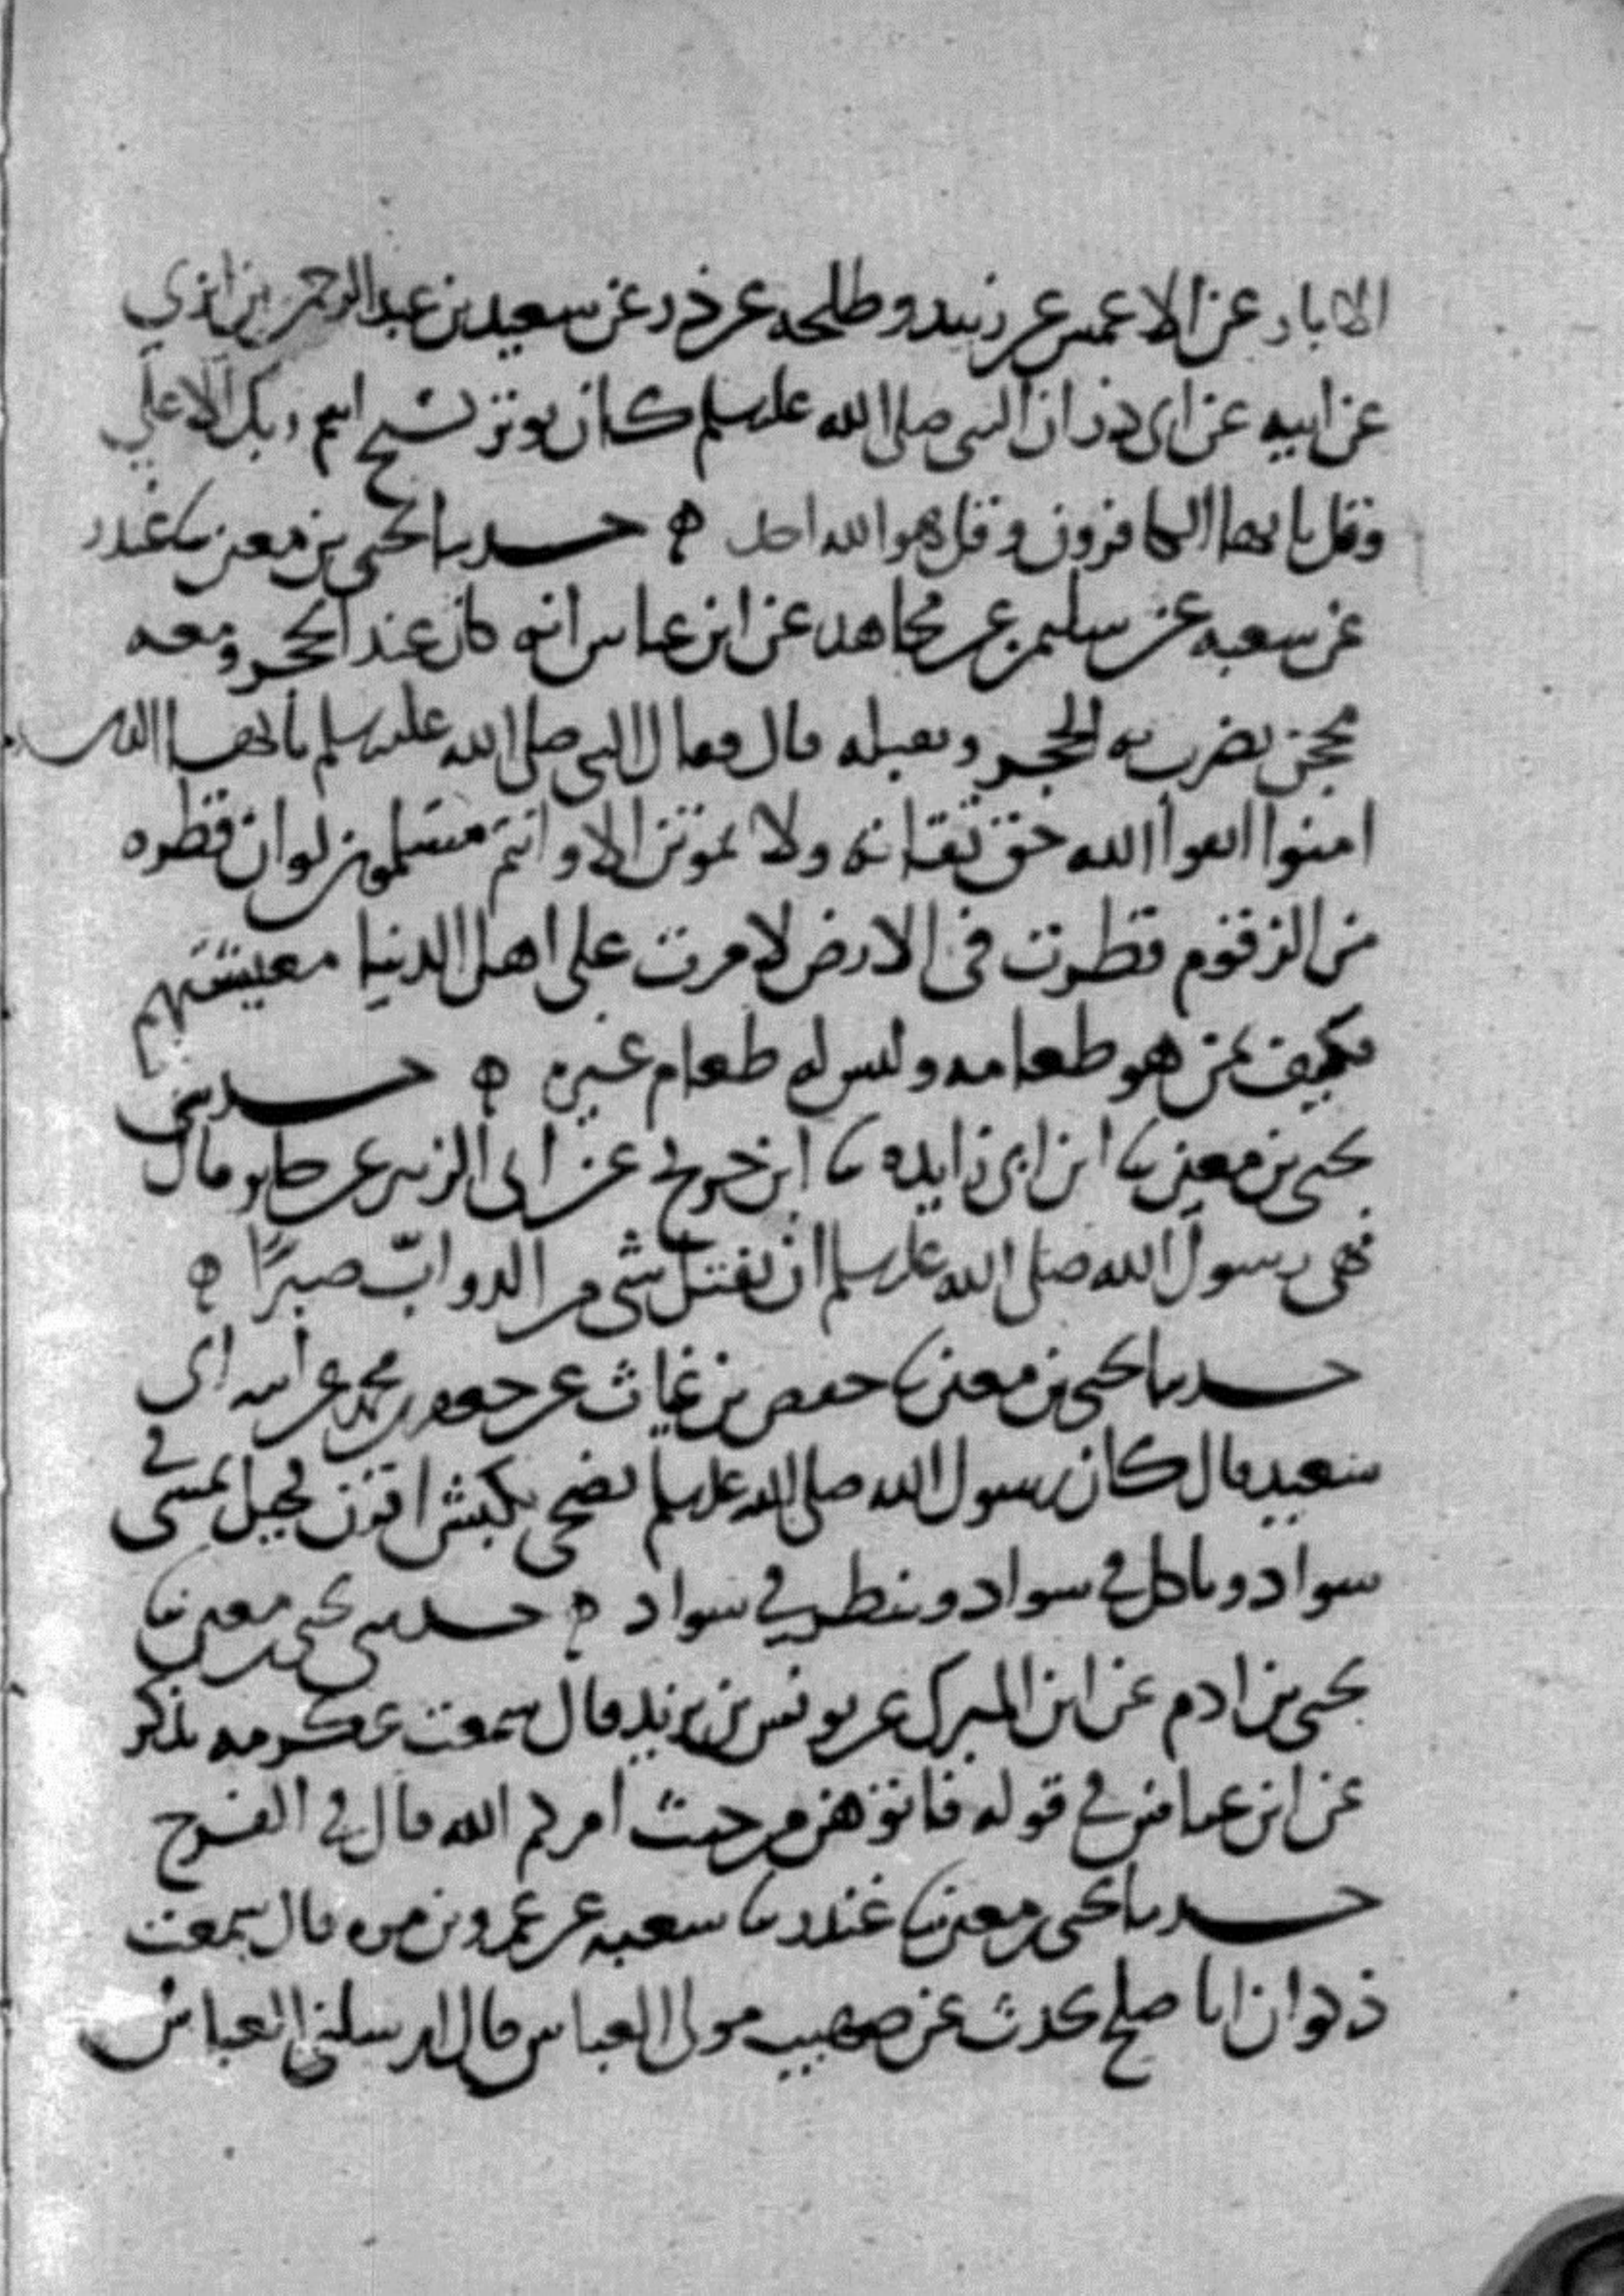 الابار عن الاعمش عن زبيد وطلحه عن ذر عن سعيد بن عبد الرحمن بن ابزي
عن ابيه عن ابي ذر ان النبي صلى الله عليه وسلم كان يوتر بسبح اسم ربك الاعلى
وقل يا ايها الكافرون وقل هو الله احد ه حدثنا يحيى بن معين نا غندر
عن شعبه عن سليمن عن مجاهد عن ابن عباس انه كان عند الحجر ومعه
محجن يضرب به الحجر ويقبله قال فقال النبي صلى الله عليه وسلم يا ايها الذين
امنوا اتقوا الله حق تقاته ولا تموتن الا وانتم مسلمون لو ان قطره
من الزقوم قطرت في الارض لامرت على اهل الدنيا معيشتهم
فكيف بمن هو طعامه وليس له طعام غيره ه حدثني
يحيى بن معين نا ابن ابي زايده نا ابن جريج عن ابي الزبير عن جابر قال
نهى رسول الله صلى الله عليه وسلم ان يقتل شي من الدواب صبرًا ه
حدثنا يحيى بن معين نا حفص بن غياث عن جعفر بن محمد عن ابيه عن ابي
سعيد قال كان رسول الله صلى الله عليه وسلم يضحي بكبش اقرن فحيل يمشي في
سواد وياكل في سواد وينظر في سواد ه حدثني يحيى بن معين نا
يحيى بن ادم عن ابن المبرك عن يونس بن يزيد قال سمعت عكرمه يذكر
عن ابن عباس في قوله فاتوهن من حيث امركم الله قال في الفرج
حدثنا يحيى بن معين نا غندر نا شعبه عن عمرو بن مره قال سمعت
ذكوان ابا صلح يحدث عن صهيب مولى العباس قال ارسلني العباس